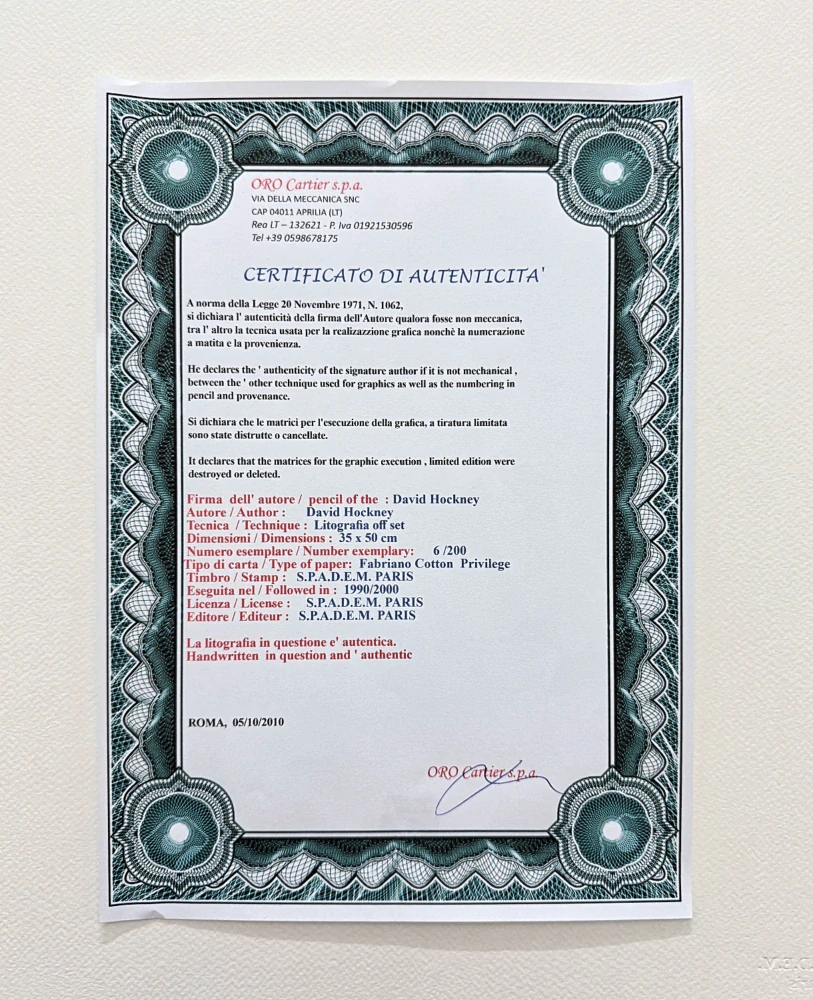 ORO Cartier s.p.a.
VIA DELLA MECCANICA SNC
CAP 04011 APRILIA (LT)
Rea LT – 132621 - P. Iva 01921530596
Tel +39 0598678175
CERTIFICATO DI AUTENTICITA'
A norma della Legge 20 Novembre 1971, N. 1062,
si dichiara l' autenticità della firma dell'Autore qualora fosse non meccanica,
tra l' altro la tecnica usata per la realizazzione grafica nonchè la numerazione
a matita e la provenienza.
He declares the ' authenticity of the signature author if it is not mechanical ,
between the ' other technique used for graphics as well as the numbering in
pencil and provenance.
Si dichiara che le matrici per l'esecuzione della grafica, a tiratura limitata
sono state distrutte o cancellate.
It declares that the matrices for the graphic execution , limited edition were
destroyed or deleted.
Firma dell' autore / pencil of the : David Hockney
Autore / Author : David Hockney
Tecnica / Technique : Litografia off set
Dimensioni / Dimensions : 35 x 50 cm
Numero esemplare / Number exemplary: 6 /200
Tipo di carta / Type of paper: Fabriano Cotton Privilege
Timbro / Stamp : S.P.A.D.E.M. PARIS
Eseguita nel / Followed in : 1990/2000
Licenza / License : S.P.A.D.E.M. PARIS
Editore / Editeur : S.P.A.D.E.M. PARIS
La litografia in questione e' autentica.
Handwritten in question and ' authentic
ROMA, 05/10/2010
ORO Cartier s.p.a.